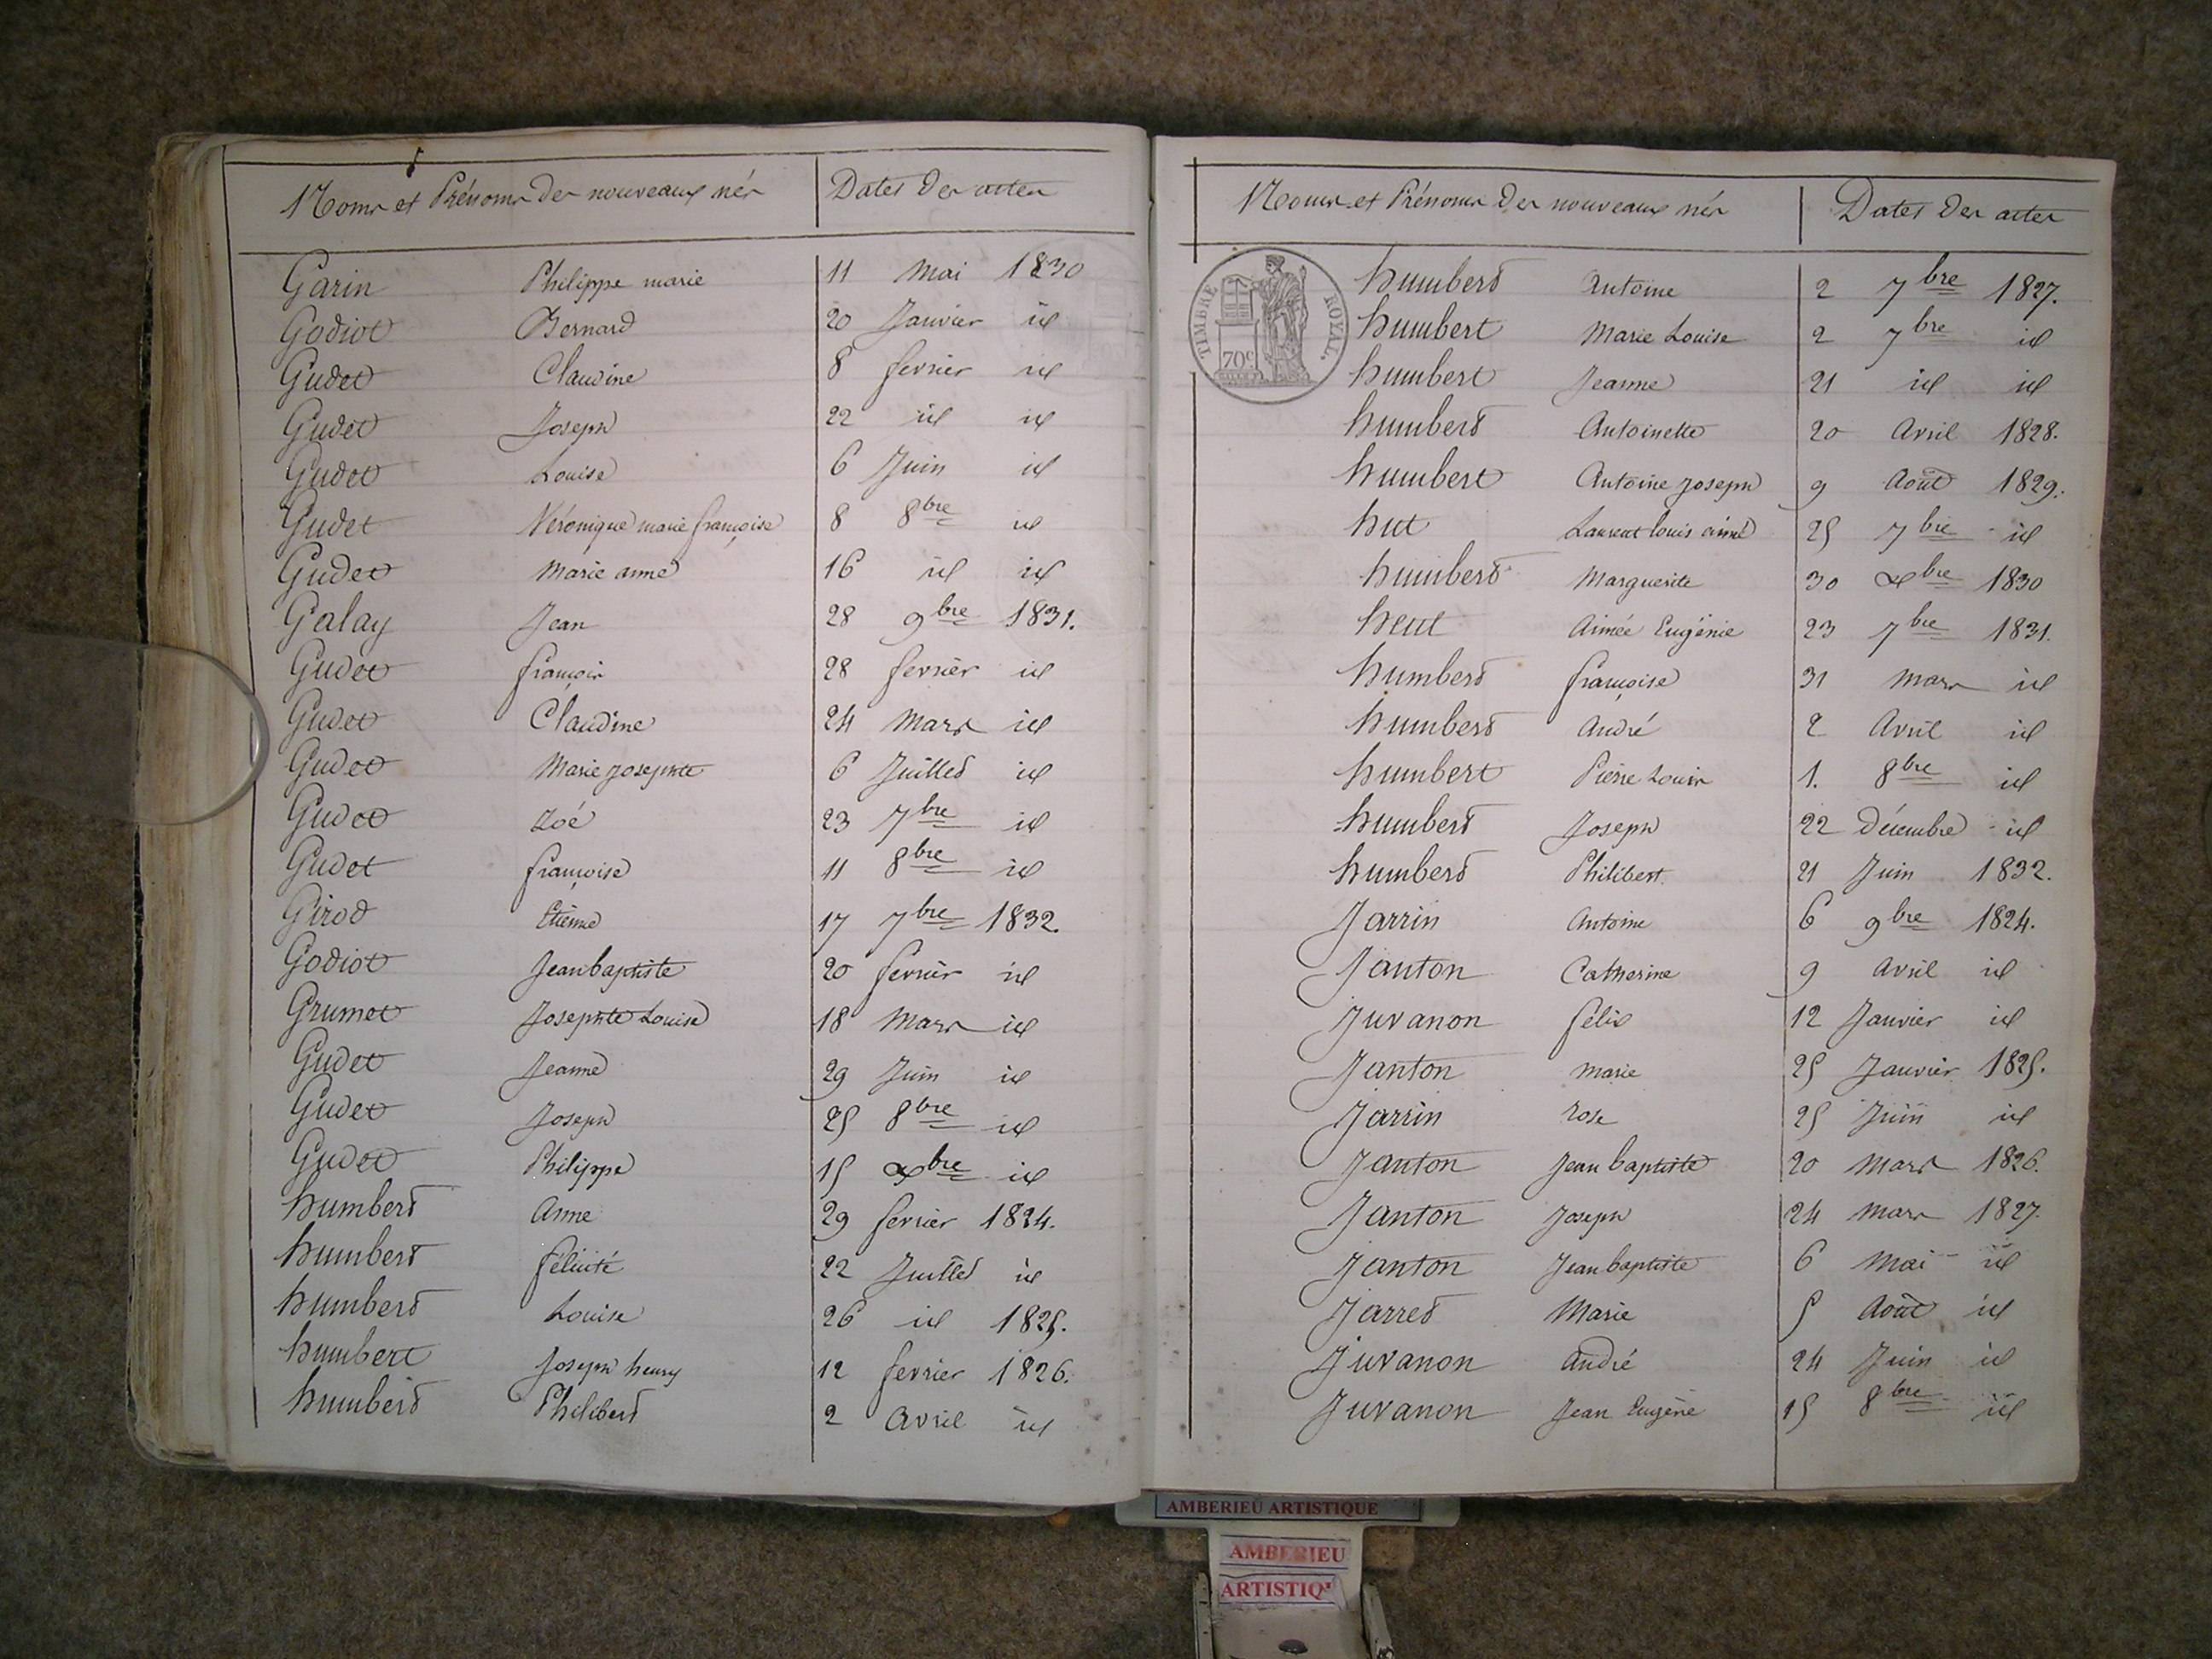 Noms et Prénoms des nouveaux nés Dates des actes
Garin Philippe marie 11 Mai 1830
Godiot Bernard 20 Janvier id
Gudet Claudine 8 fevrier id
Gudet Joseph 22 id id
Gudet Louise 6 Juin id
Gudet Véronique marie françoise 8 8bre id
Gudet Marie anne 16 id id
Galay Jean 28 9bre 1831.
Gudet françois 28 fevrier id
Gudet Claudine 24 Mars id
Gudet Marie Josephte 6 Juillet id
Gudet Zoé 23 7bre id
Gudet françoise 11 8bre id
Girod Etienne 17 7bre 1832.
Godiot Jean baptiste 20 fevrier id
Grumet Josephte Louise 18 Mars id
Gudet Jeanne 29 Juin id
Gudet Joseph 25 8bre id
Gudet Philippe 15 xbre id
humbert Anne 29 fevrier 1824.
humbert félicité 22 Juillet id
humbert Louise 26 id 1825.
humbert Joseph henry 12 fevrier 1826.
humbert Philibert 2 Avril id
Noms et Prénoms des nouveaux nés Dates des actes
TIMBRE ROYAL.
70c
humbert Antoine 2 7bre 1827.
humbert Marie Louise 2 7bre id
humbert Jeanne 21 id id
humbert Antoinette 20 Avril 1828.
humbert Antoine Joseph 9 Août 1829.
hut Laurent louis aimé 25 7bre id
humbert Marguerite 30 xbre 1830
heut Aimée Eugénie 23 7bre 1831.
humbert françoise 31 Mars id
humbert André 2 Avril id
humbert Pierre Louis 1. 8bre id
humbert Joseph 22 décembre id
humbert Philibert 21 Juin 1832.
Jarrin Antoine 6 9bre 1824.
Janton Catherine 9 Avril id
Juvanon félix 12 Janvier id
Janton Marie 25 Janvier 1825.
Jarrin rose 25 Juin id
Janton Jean baptiste 20 Mars 1826.
Janton Joseph 24 Mars 1827.
Janton Jean baptiste 6 Mai id
Jarret Marie 5 Août id
Juvanon André 24 Juin id
Juvanon Jean Eugène 15 8bre id
AMBERIEU ARTISTIQUE
AMBERIEU
ARTISTIQ